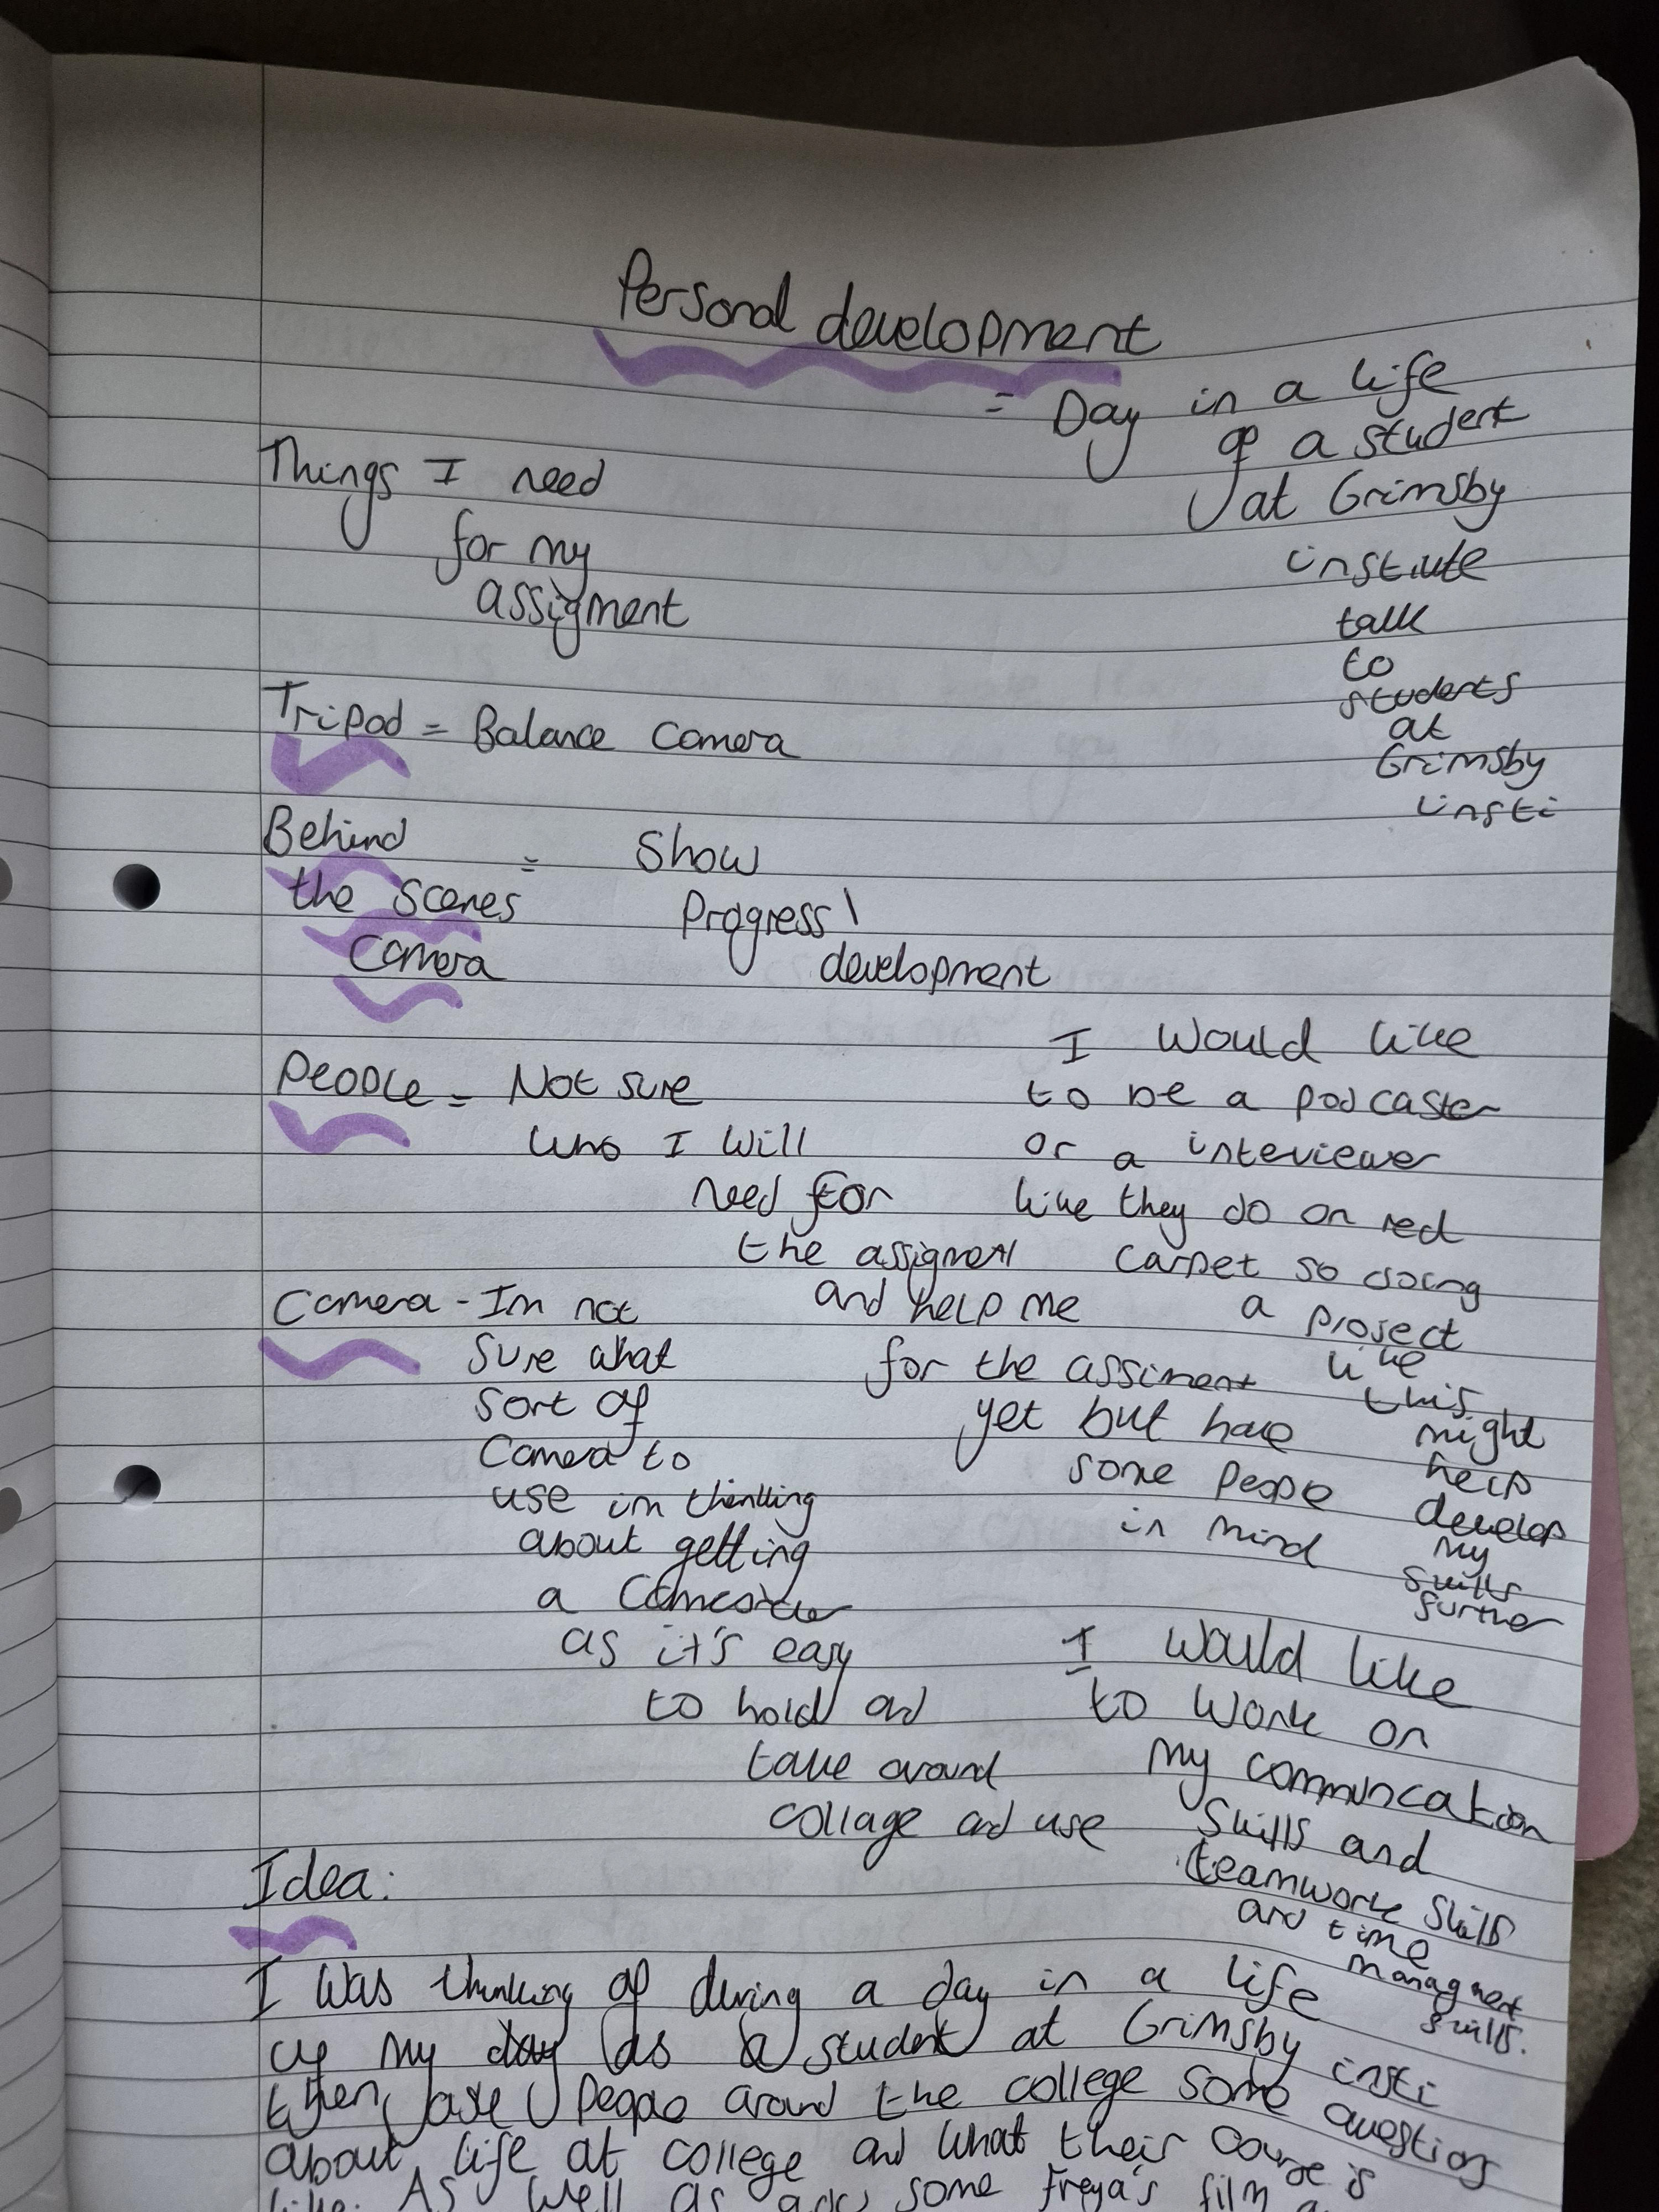 Personal development
= Day in a life
of a student
at Grimsby
instiute
talk
to
students
at
Grimsby
insti
Things I need
for my
assigment
Tripod = Balance camera
Behind
the scenes
camera
= Show
Progress \
development
People = Not sure
who I will
need for
the assigment
and help me
for the assiment
yet but have
some people
in mind
I would like
to be a podcaster
or a interviewer
like they do on red
carpet so doing
a project
like
this
might
help
develop
my
skills
further
Camera - Im not
sure what
sort of
camera to
use im thinking
about getting
a camcorder
as it's easy
to hold and
take around
collage and use
I would like
to work on
my communcation
skills and
teamwork skills
and time
managment
skills.
Idea:
I was thinking of during a day in a life
of my day as a student at Grimsby insti
then ask people around the college some question
about life at college and what their course is
like. As well as some Freya's film